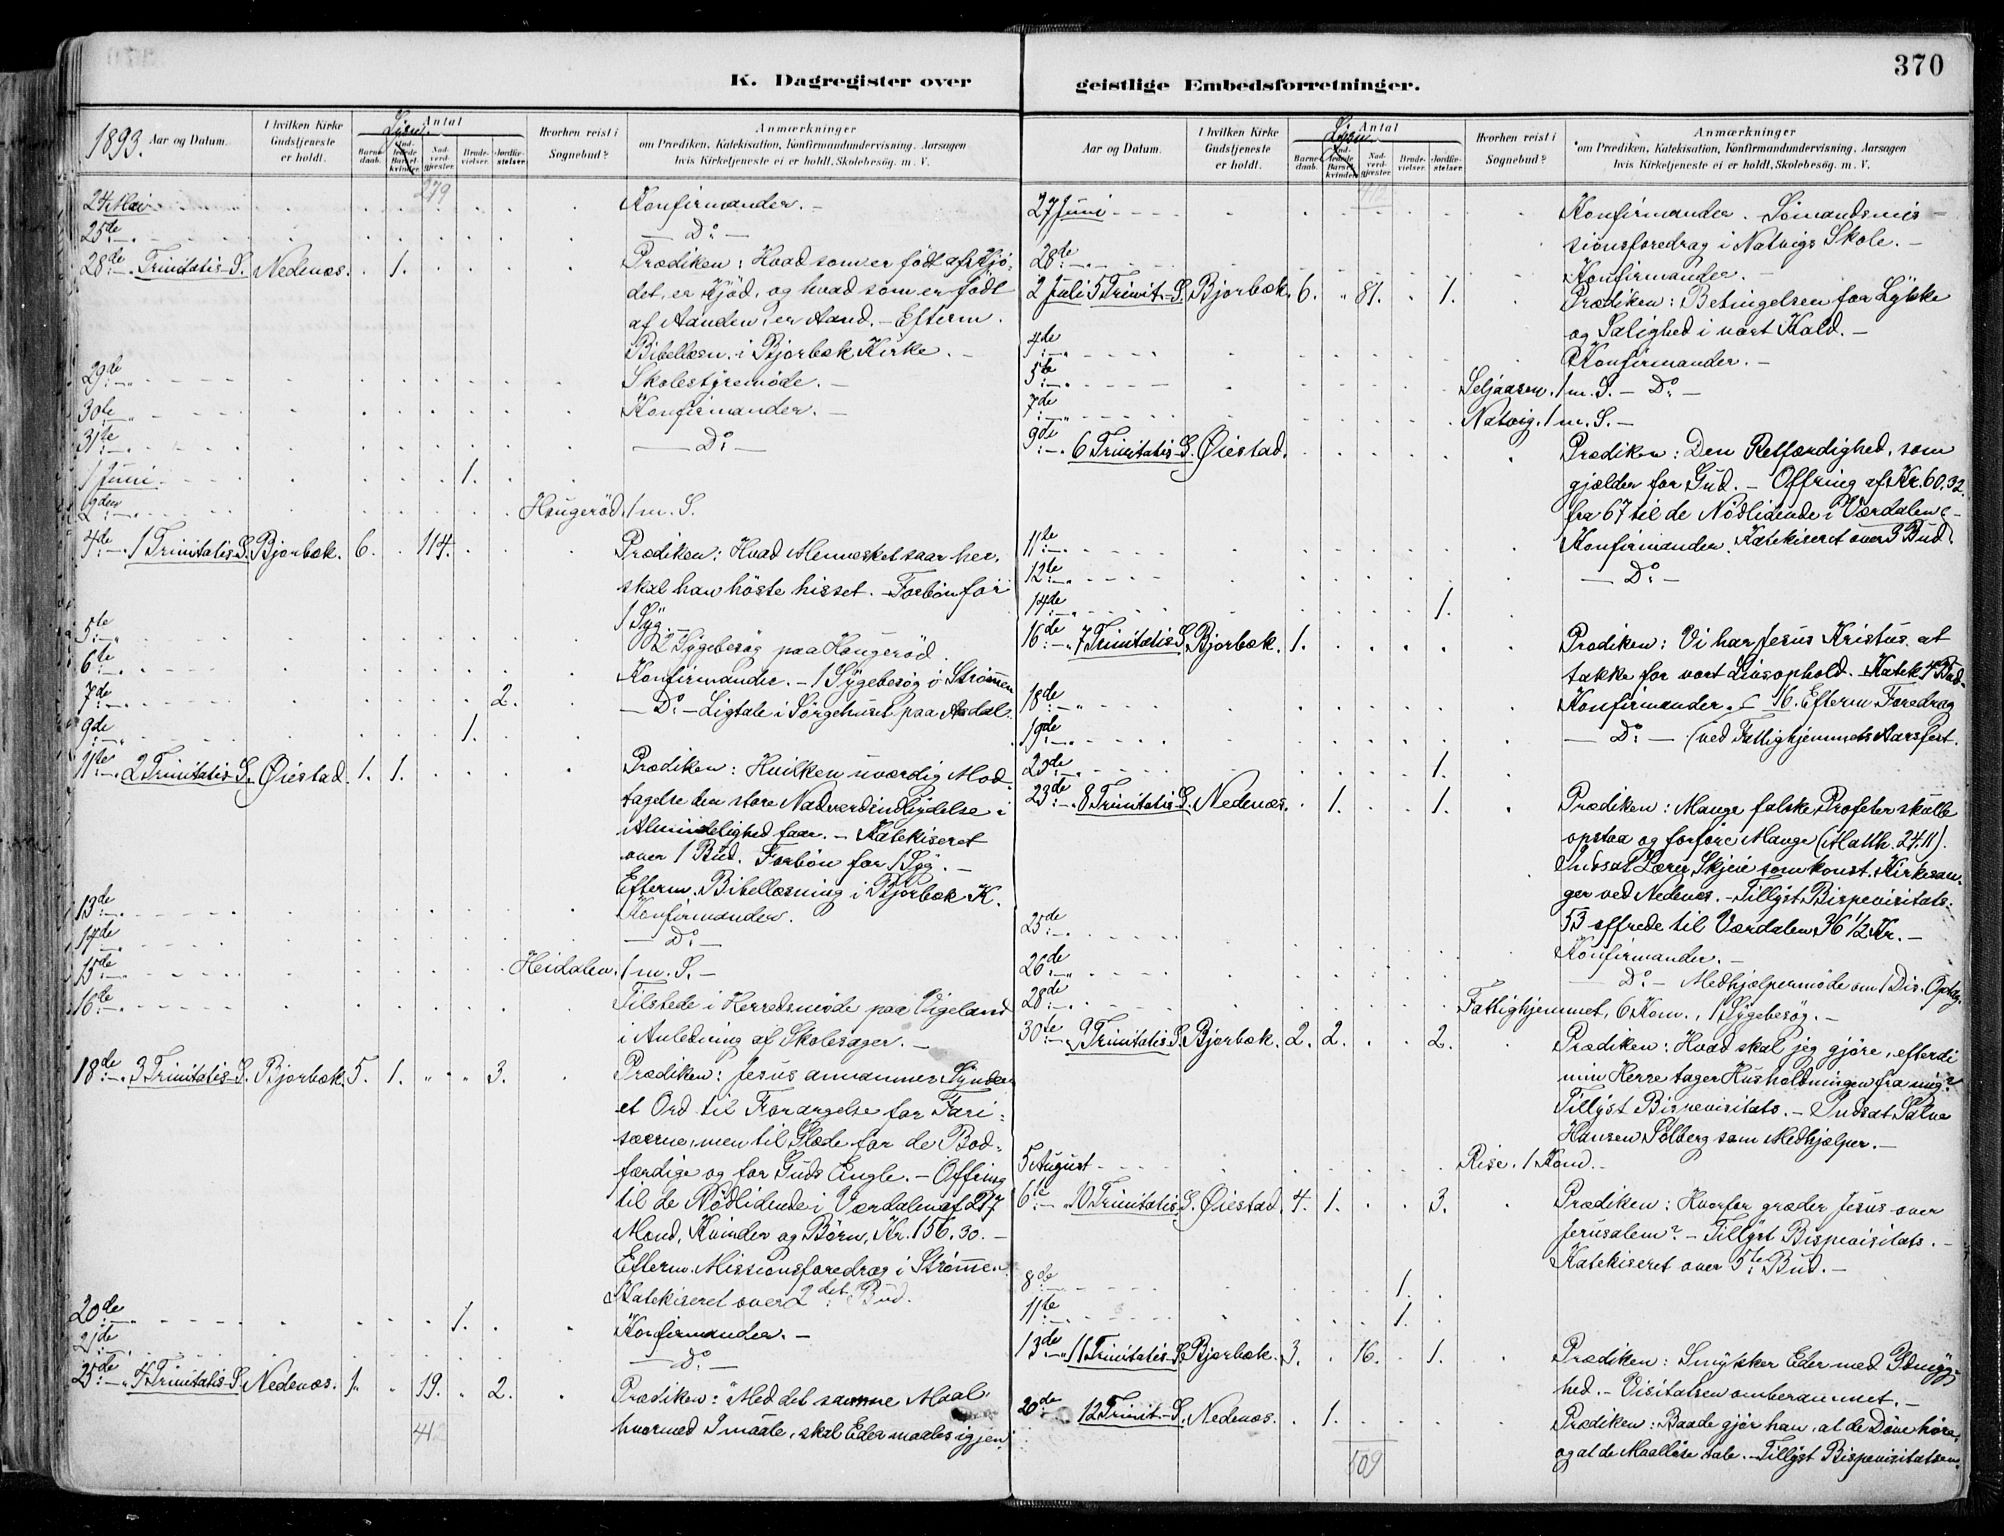 370
K. Dagregister over
geistlige Embedsforretninger.
1893. Aar og Datum.
I hvilken Kirke Gudstjeneste er holdt.
Antal
Lysn.
Barnedaab.
Indledede Barselkvinder.
Nadverdgjester.
Brudevielser.
Jordfæstelser.
Hvorhen reist i Sognebud?
Anmærkninger
om Prædiken, Katekisation, Konfirmandundervisning, Aarsagen
hvis Kirketjeneste ei er holdt, Skolebesøg. m. V.
279
24 Mai Konfirmander. –
25de – Do –
28de Trinitatis S. Nedenæs. 1. Prædiken: Hvad som er født af Kjø-
det, er Kjød, og hvad som er født
af Aanden, er Aand. – Efterm.
Bibellæsn. i Bjorbæk Kirke. –
29de Skolestyremøde. –
30te Konfirmander. –
31te – Do –
1 Juni 1.
2den Hougerød. 1 m. S.
4de 1 Trinitatis S. Bjorbæk. 6. 114. Prædiken: Hvad Mennesket saar her,
skal han høste hisset. – Forbøn for
1 Syg. –
5te 2 Sygebesøg paa Hougerød.
6te Konfirmander. – 1 Sygebesøg i Strømmen
7de 2. – Do – Ligtale i Sørgehuset paa Asdal.
9de 1.
11te 2 Trinitatis S. Øiestad. 1. 1. Prædiken: Hvilken uværdig Mod-
tagelse den store Nadverdindbydelse i
Almindelighed faar. – Katekiseret
over 1 Bud. Forbøn for 1 Syg. –
Efterm. Bibellæsning i Bjorbæk K.
13de Konfirmander.
14de – Do –
15de Heidalen. 1 m. S. –
16te Tilstede i Herredsmøde paa Vigeland
i Anledning af Skolesager. –
18de 3 Trinitatis S. Bjorbæk. 5. 1. 3. Prædiken: Jesus annammer Syndere
et Ord til Forargelse for Fari-
sæerne, men til Glæde for de Bod-
færdige og for Guds Engle. – Offring
til de Nødlidende i Værdalen af 217
Mænd, Kvinder og Børn, Kr. 156.30. –
Efterm. Missionsforedrag i Strømmen.
Katekiseret over 2det Bud.
20de 1. Konfirmander. –
21de – Do –
25de 4 Trinitatis S. Nedenæs. 1. 19. 2. Prædiken: Med det samme Maal
hvormed I maale, skal Eder maales igjen.
412
Aar og Datum.
I hvilken Kirke Gudstjeneste er holdt.
Antal
Lysn.
Barnedaab.
Indledede Barselkvinder.
Nadverdgjester.
Brudevielser.
Jordfæstelser.
Hvorhen reist i Sognebud?
Anmærkninger
om Prædiken, Katekisation, Konfirmandundervisning, Aarsagen
hvis Kirketjeneste ei er holdt, Skolebesøg. m. V.
412
27 Juni Konfirmander. – Sømandsmis-
sionsforedrag i Natvigs Skole. –
28de Konfirmander. –
2 Juli 5 Trinit. S. Bjorbæk 6. 81. 1. Prædiken: Betingelsen for Lykke
og Salighed i vort Kald. –
4de Konfirmander. –
5te Seljaasen. 1 m. S. – Do –
7de Natvig. 1 m. S. –
9de 6 Trinitatis S. Øiestad. Prædiken: Den Retfærdighed, som
gjælder for Gud. – Offring af Kr. 60.32
fra 67 til de Nødlidende i Værdalen. –
11te Konfirmander. Katekiseret over 3 Bud.
12te – Do –
14de 1.
16de 7 Trinitatis S. Bjorbæk. 1. Prædiken: Vi har Jesus Kristus at
takke for vort Livsophold. – Katek. 4 Bud.
18de Konfirmander. – 16. Efterm Foredrag
19de – Do – (ved Fattighjemmets Aarsfest.
23de 1.
23de 8 Trinitatis S. Nedenæs. 1. 1. Prædiken: Mange falske Profeter skulle
opstaa og forføre Mange (Matth. 24.11).
Indsat Lærer Skjeie som konst. Kirkesan-
ger ved Nedenæs. – Tillyst Bispevisitats.
53 offrede til Værdalen 36 1/2 Kr. –
25de Konfirmander. –
26de – Do – Medhjælpermøde om 1 Dis. Opbdg.
28de Fattighjemmet, 6 Kom., 1 Sygebesøg. –
30te 9 Trinitatis S. Bjorbæk. 2. 2. 2. Prædiken: Hvad skal jeg gjøre, efterdi
min Herre tager Husholdningen fra mig?
Tillyst Bispevisitats. – Indsat Salve
Hansen Solberg som Medhjælper. –
5 August Rise. 1 Kom. –
6te 10 Trinitatis S. Øiestad. 4. 1. 3. Prædiken: Hvorfor græder Jesus over
Jerusalem? – Tillyst Bispevisitats. –
Katekiseret over 5te Bud. –
8de 1.
11te 1.
13de 11 Trinitatis S. Bjorbæk. 3. 16. 1. Prædiken: Smykker Eder med Ydmyg-
hed. – Visitatsen omberammet. –
20de 12 Trinit. S. Nedenæs. 1. Prædiken: Baade gjør han, at de Døve høre,
og at de Maalløse tale. – Tillyst Bispevisitatsen.
509